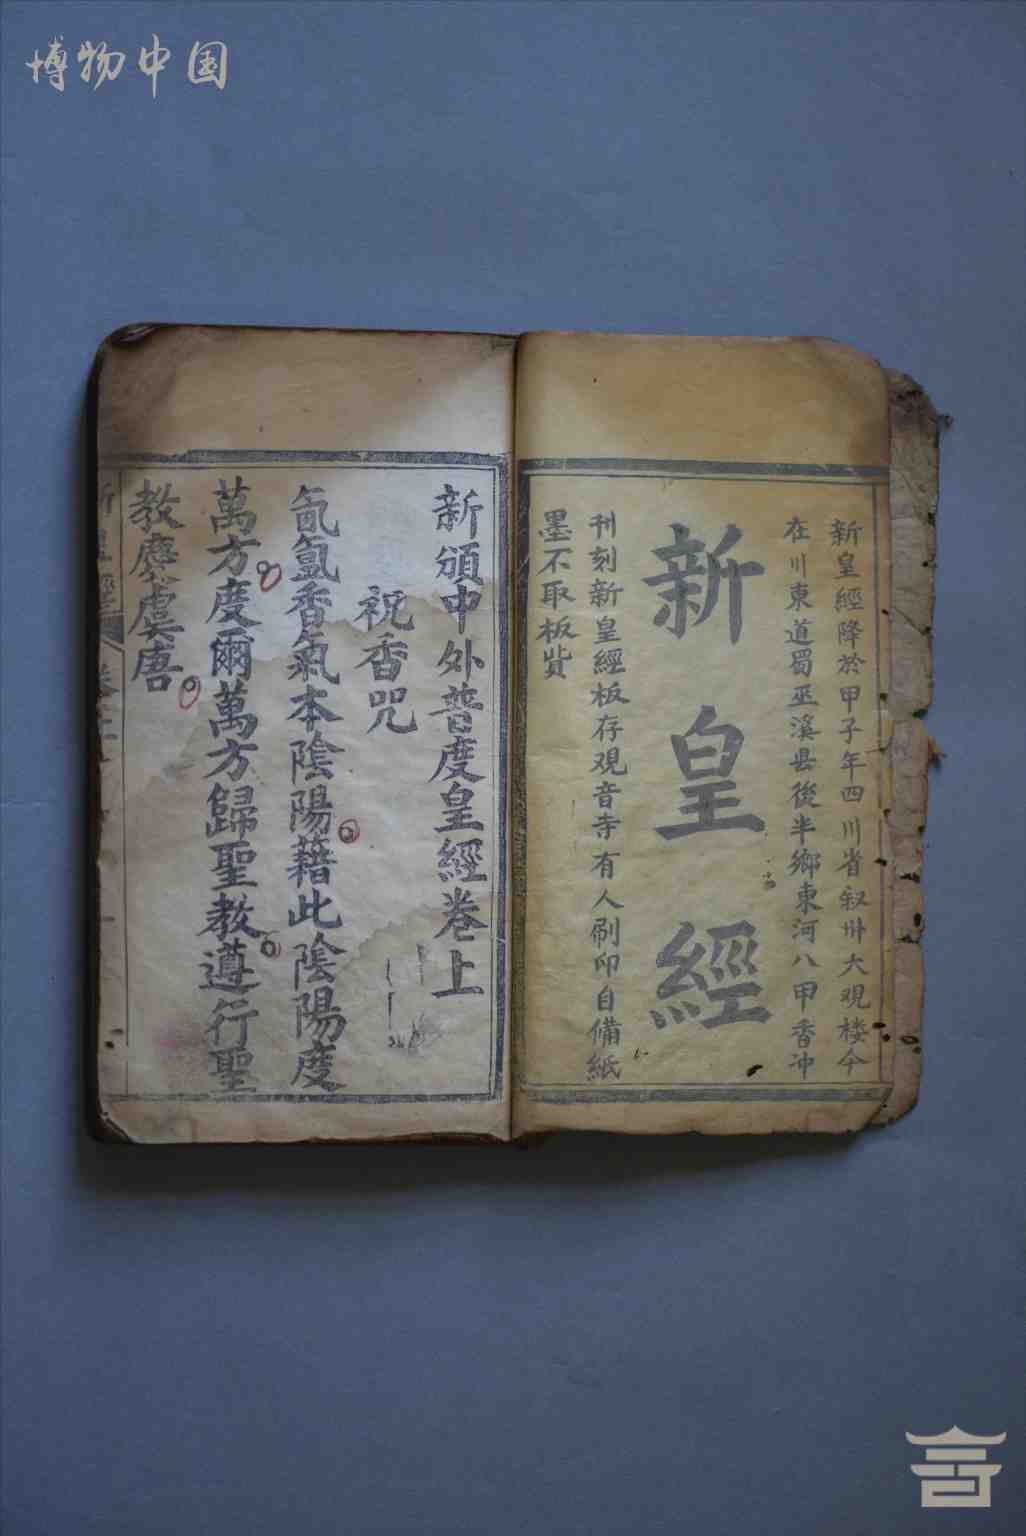 博物中国
新皇經降於甲子年四川省叙州大观楼今
在川東道蜀巫溪县後半鄉東河八甲香冲
新皇經
刊刻新皇經板存观音寺有人刷印自備紙
墨不取板貲
新頒中外普度皇經卷上
祝香咒
氤氳香氣本陰陽藉此陰陽度
萬方度爾萬方歸聖教遵行聖
教慶虞唐